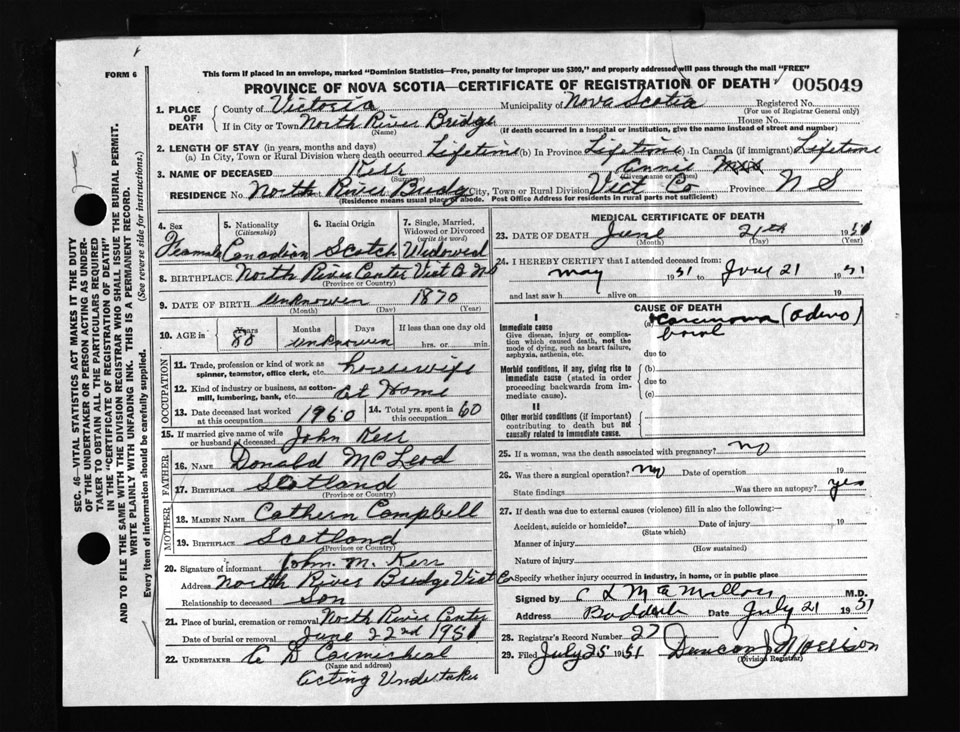 FORM 6
This form if placed in an envelope, marked "Dominion Statistics—Free, penalty for improper use $300," and properly addressed will pass through the mail "FREE"
PROVINCE OF NOVA SCOTIA—CERTIFICATE OF REGISTRATION OF DEATH 005049
SEC. 46—VITAL STATISTICS ACT MAKES IT THE DUTY
OF THE UNDERTAKER OR PERSON ACTING AS UNDER-
TAKER TO OBTAIN ALL THE PARTICULARS REQUIRED
IN THE "CERTIFICATE OF REGISTRATION OF DEATH"
AND TO FILE THE SAME WITH THE DIVISION REGISTRAR WHO SHALL ISSUE THE BURIAL PERMIT.
WRITE PLAINLY WITH UNFADING INK. THIS IS A PERMANENT RECORD.
Every item of information should be carefully supplied. (See reverse side for instructions.)
1. PLACE OF DEATH
County of Victoria Municipality of Nova Scotia Registered No.
(For use of Registrar General only)
If in City or Town North River Bridge House No.
(Name) (If death occurred in a hospital or institution, give the name instead of street and number)
2. LENGTH OF STAY (in years, months and days)
(a) In City, Town or Rural Division where death occurred Lifetime (b) In Province Lifetime In Canada (if immigrant) Lifetime
3. NAME OF DECEASED Kerr Annie
(Surname) (Given name or names)
RESIDENCE No. North River Bridg City, Town or Rural Division Vict Co Province N S
(Residence means usual place of abode. Post Office Address for residents in rural parts not sufficient)
4. Sex 5. Nationality (Citizenship) 6. Racial Origin 7. Single, Married, Widowed or Divorced (write the word)
Female Canadian Scotch Widowed
8. BIRTHPLACE North River Center Vict Co NS
(Province or Country)
9. DATE OF BIRTH unknowen 1870
(Month) (Day) (Year)
10. AGE in Years Months Days If less than one day old
80 unknowen hrs. or min.
OCCUPATION
11. Trade, profession or kind of work as spinner, teamster, office clerk, etc. housewife
12. Kind of industry or business, as cotton-mill, lumbering, bank, etc. At Home
13. Date deceased last worked at this occupation 1950 14. Total yrs. spent in this occupation 60
15. If married give name of wife or husband of deceased John Kerr
FATHER
16. NAME Donald McLeod
17. BIRTHPLACE Scotland
(Province or Country)
MOTHER
18. MAIDEN NAME Cathern Campbell
19. BIRTHPLACE Scotland
(Province or Country)
20. Signature of informant John. M. Kerr
Address North River Bridge Vict Co
Relationship to deceased Son
21. Place of burial, cremation or removal North River Center
Date of burial or removal June 22nd 1951
22. UNDERTAKER D Carmicheal
(Name and address)
Acting Undertaker
MEDICAL CERTIFICATE OF DEATH
23. DATE OF DEATH June 19
(Month) (Day) (Year)
24. I HEREBY CERTIFY that I attended deceased from:
May 1951 to June 21 1951
and last saw h alive on 19
CAUSE OF DEATH
I
Immediate cause
Give disease, injury or complication which caused death, not the mode of dying, such as heart failure, asphyxia, asthenia, etc.
(a) Carcinoma (adeno)
due to
Morbid conditions, if any, giving rise to immediate cause (stated in order proceeding backwards from immediate cause).
(b)
due to
(c)
II
Other morbid conditions (if important) contributing to death but not causally related to immediate cause.
25. If a woman, was the death associated with pregnancy? no
26. Was there a surgical operation? no Date of operation 19
State findings Was there an autopsy? yes
27. If death was due to external causes (violence) fill in also the following:—
Accident, suicide or homicide? Date of injury 19
(State which)
Manner of injury
(How sustained)
Nature of injury
Specify whether injury occurred in industry, in home, or in public place
Signed by C L M.D.
Address Baddeck Date July 21 1951
28. Registrar's Record Number 27
29. Filed July 25 1951 Duncan J Morrison
(Division Registrar)